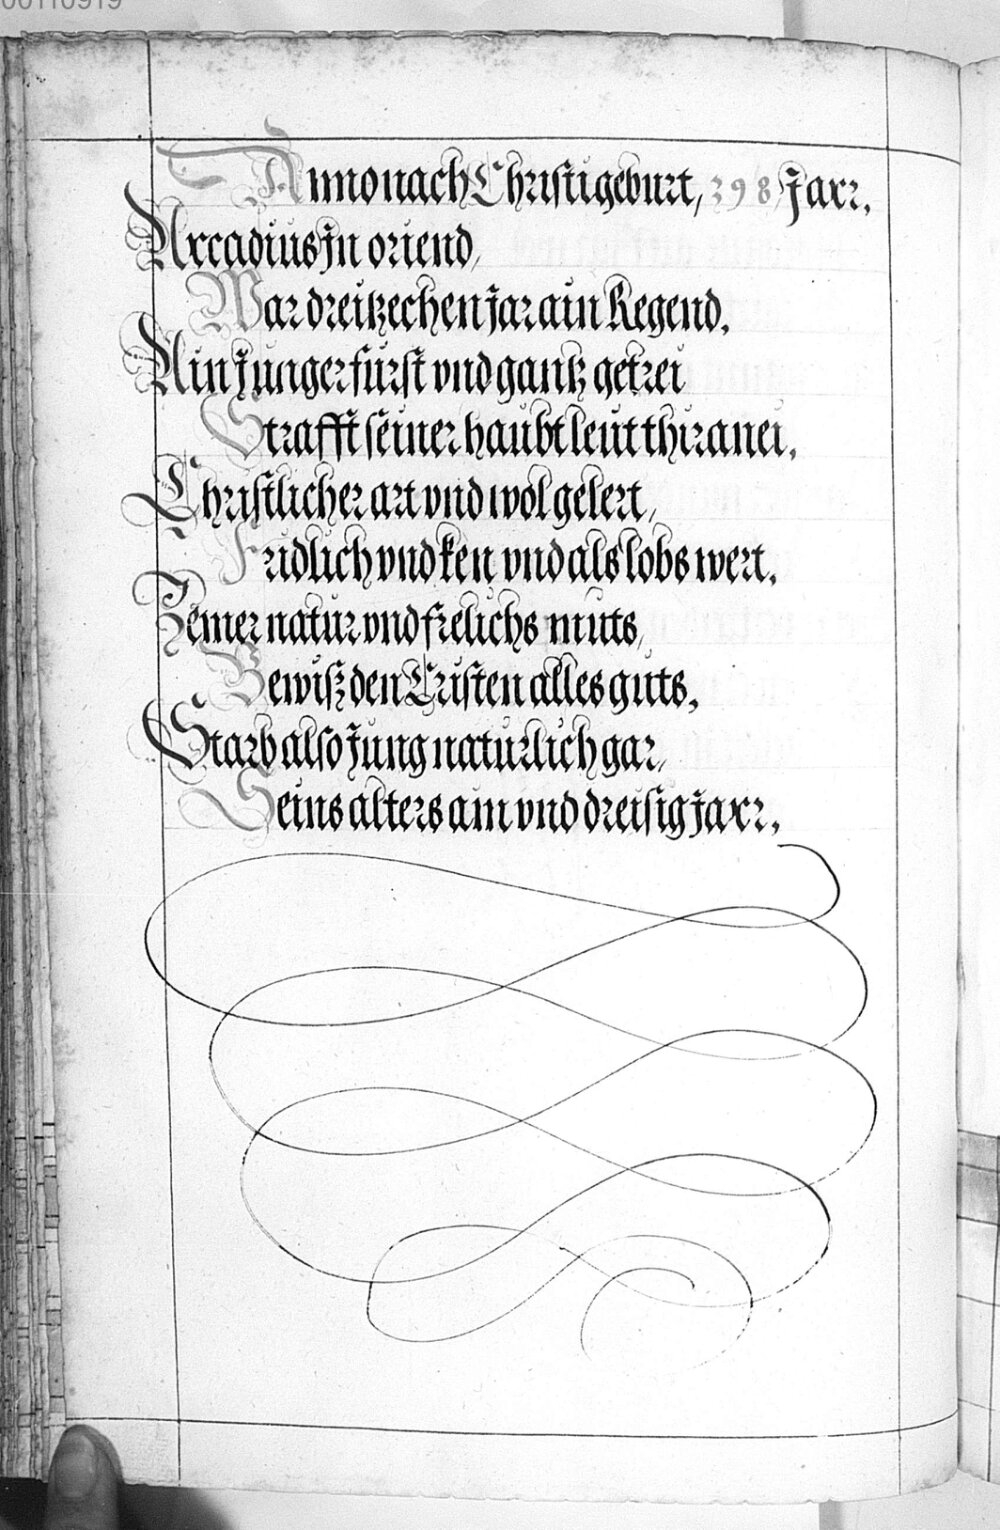 00110919
Anno nach Christi geburt, 398 Jarr,
Arcadius In oriend,
War dreitzechen Jar ain Regend,
Ain Junger fürst vnd gantz getrei
Strafft seiner haubtleut thiranei,
Christlicher art vnd wol gelert,
Fridlich vnd ken vnd als lobs wert,
Zemer natur vnd frelichs muts,
Bewisz den Cristen alles guts,
Starb also Jung natürlich gar,
Seins alters ain vnd dreisig Jarr,